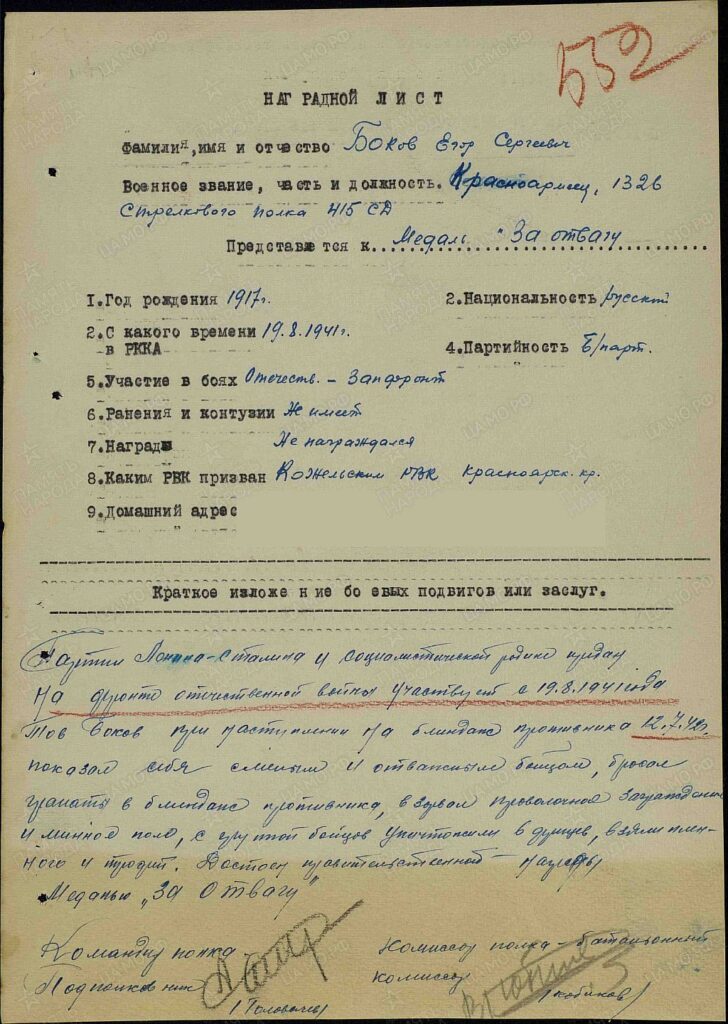 552
НАГРАДНОЙ ЛИСТ
Фамилия, имя и отчество Боков Егор Сергеевич
Военное звание, часть и должность. Красноармеец, 1326
Стрелкового полка 415 СД
Представляется к... Медаль "За отвагу
1. Год рождения 1917г. 2. Национальность русский
2. С какого времени 19.8.1941г.
в РККА 4. Партийность Б/парт.
5. Участие в боях Отечеств. - Запфронт
6. Ранения и контузии Не имеет
7. Награды Не награждался
8. Каким РВК призван РВК Красноярск. кр.
9. Домашний адрес
Краткое изложение боевых подвигов или заслуг.
Партии Ленина-Сталина и социалистической родине предан
На фронте отечественной войны участвует с 19.8.1941 года
Тов Боков при наступлении на блиндаж противника 12.7.42
показал себя смелым и отважным бойцом, бросал
гранаты в блиндаж противника, взорвал проволочное заграждение
и минное поле, с группой бойцов уничтожили в
ного и Достоен правительственной награды
Медалью „За Отвагу"
Командир полка Комиссар полка - батальонный
Подполковник комиссар